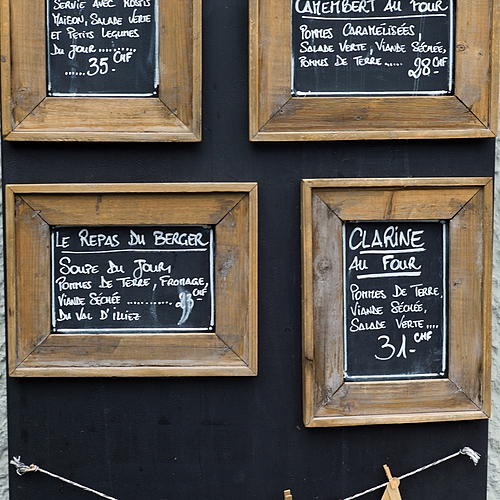 SERVIE AVEC RÖSTIS
MAISON, SALADE VERTE
ET PETITS LEGUMES
DU JOUR ..........
...... 35.- CHF
CAMEMBERT AU FOUR
POMMES CARAMÉLISÉES,
SALADE VERTE, VIANDE SÉCHÉE,
POMMES DE TERRE..... 28.- CHF
LE REPAS DU BERGER
SOUPE DU JOUR,
POMMES DE TERRE, FROMAGE,
VIANDE SÉCHÉE ........... 23 CHF
DU VAL D'ILLIEZ
CLARINE
AU FOUR
POMMES DE TERRE,
VIANDE SÉCHÉE,
SALADE VERTE ....
31.- CHF